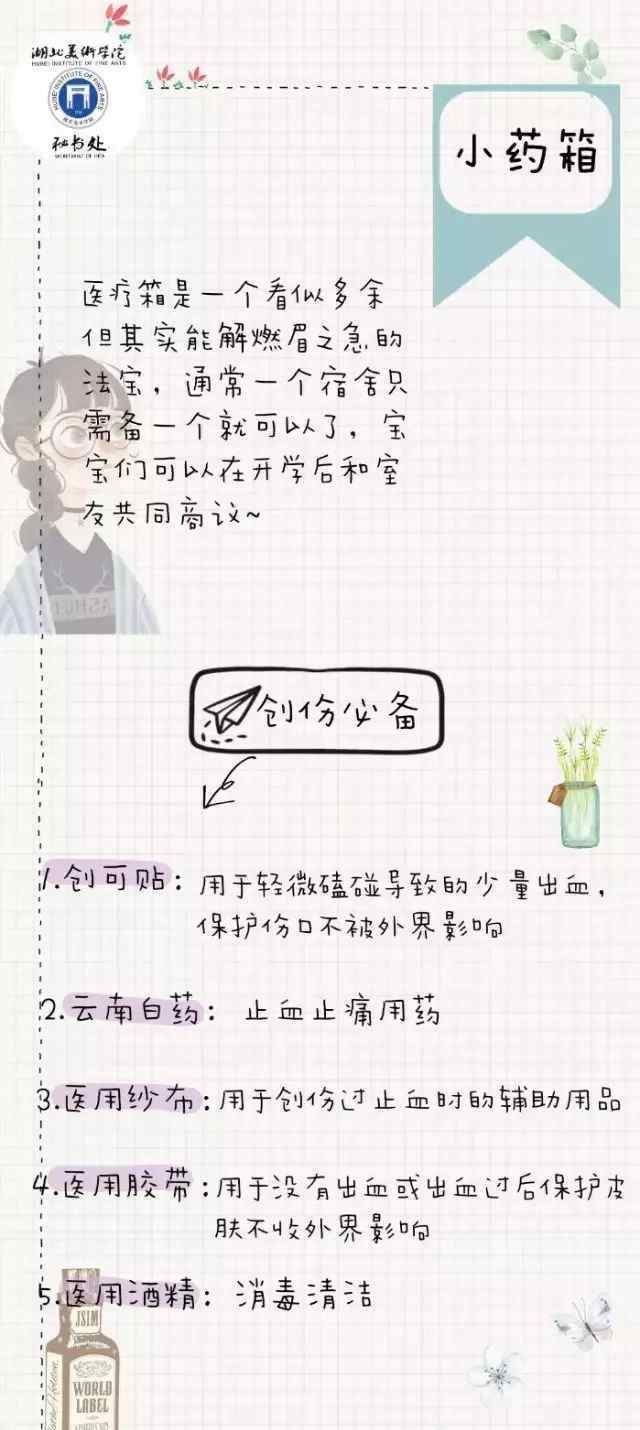 湖北美術学院
HUBEI INSTITUTE OF FINE ARTS
HUBEI INSTITUTE OF FINE ARTS
秘书处
小药箱
医疗箱是一个看似多余
但其实能解燃眉之急的
法宝，通常一个宿舍只
需备一个就可以了，宝
宝们可以在开学后和室
友共同商议~
创伤必备
1.创可贴：用于轻微磕碰导致的少量出血，
保护伤口不被外界影响
2.云南白药：止血止痛用药
3.医用纱布：用于创伤过止血时的辅助用品
4.医用胶带：用于没有出血或出血过后保护皮
肤不收外界影响
5.医用酒精：消毒清洁
JSIM
WORLD
LABEL